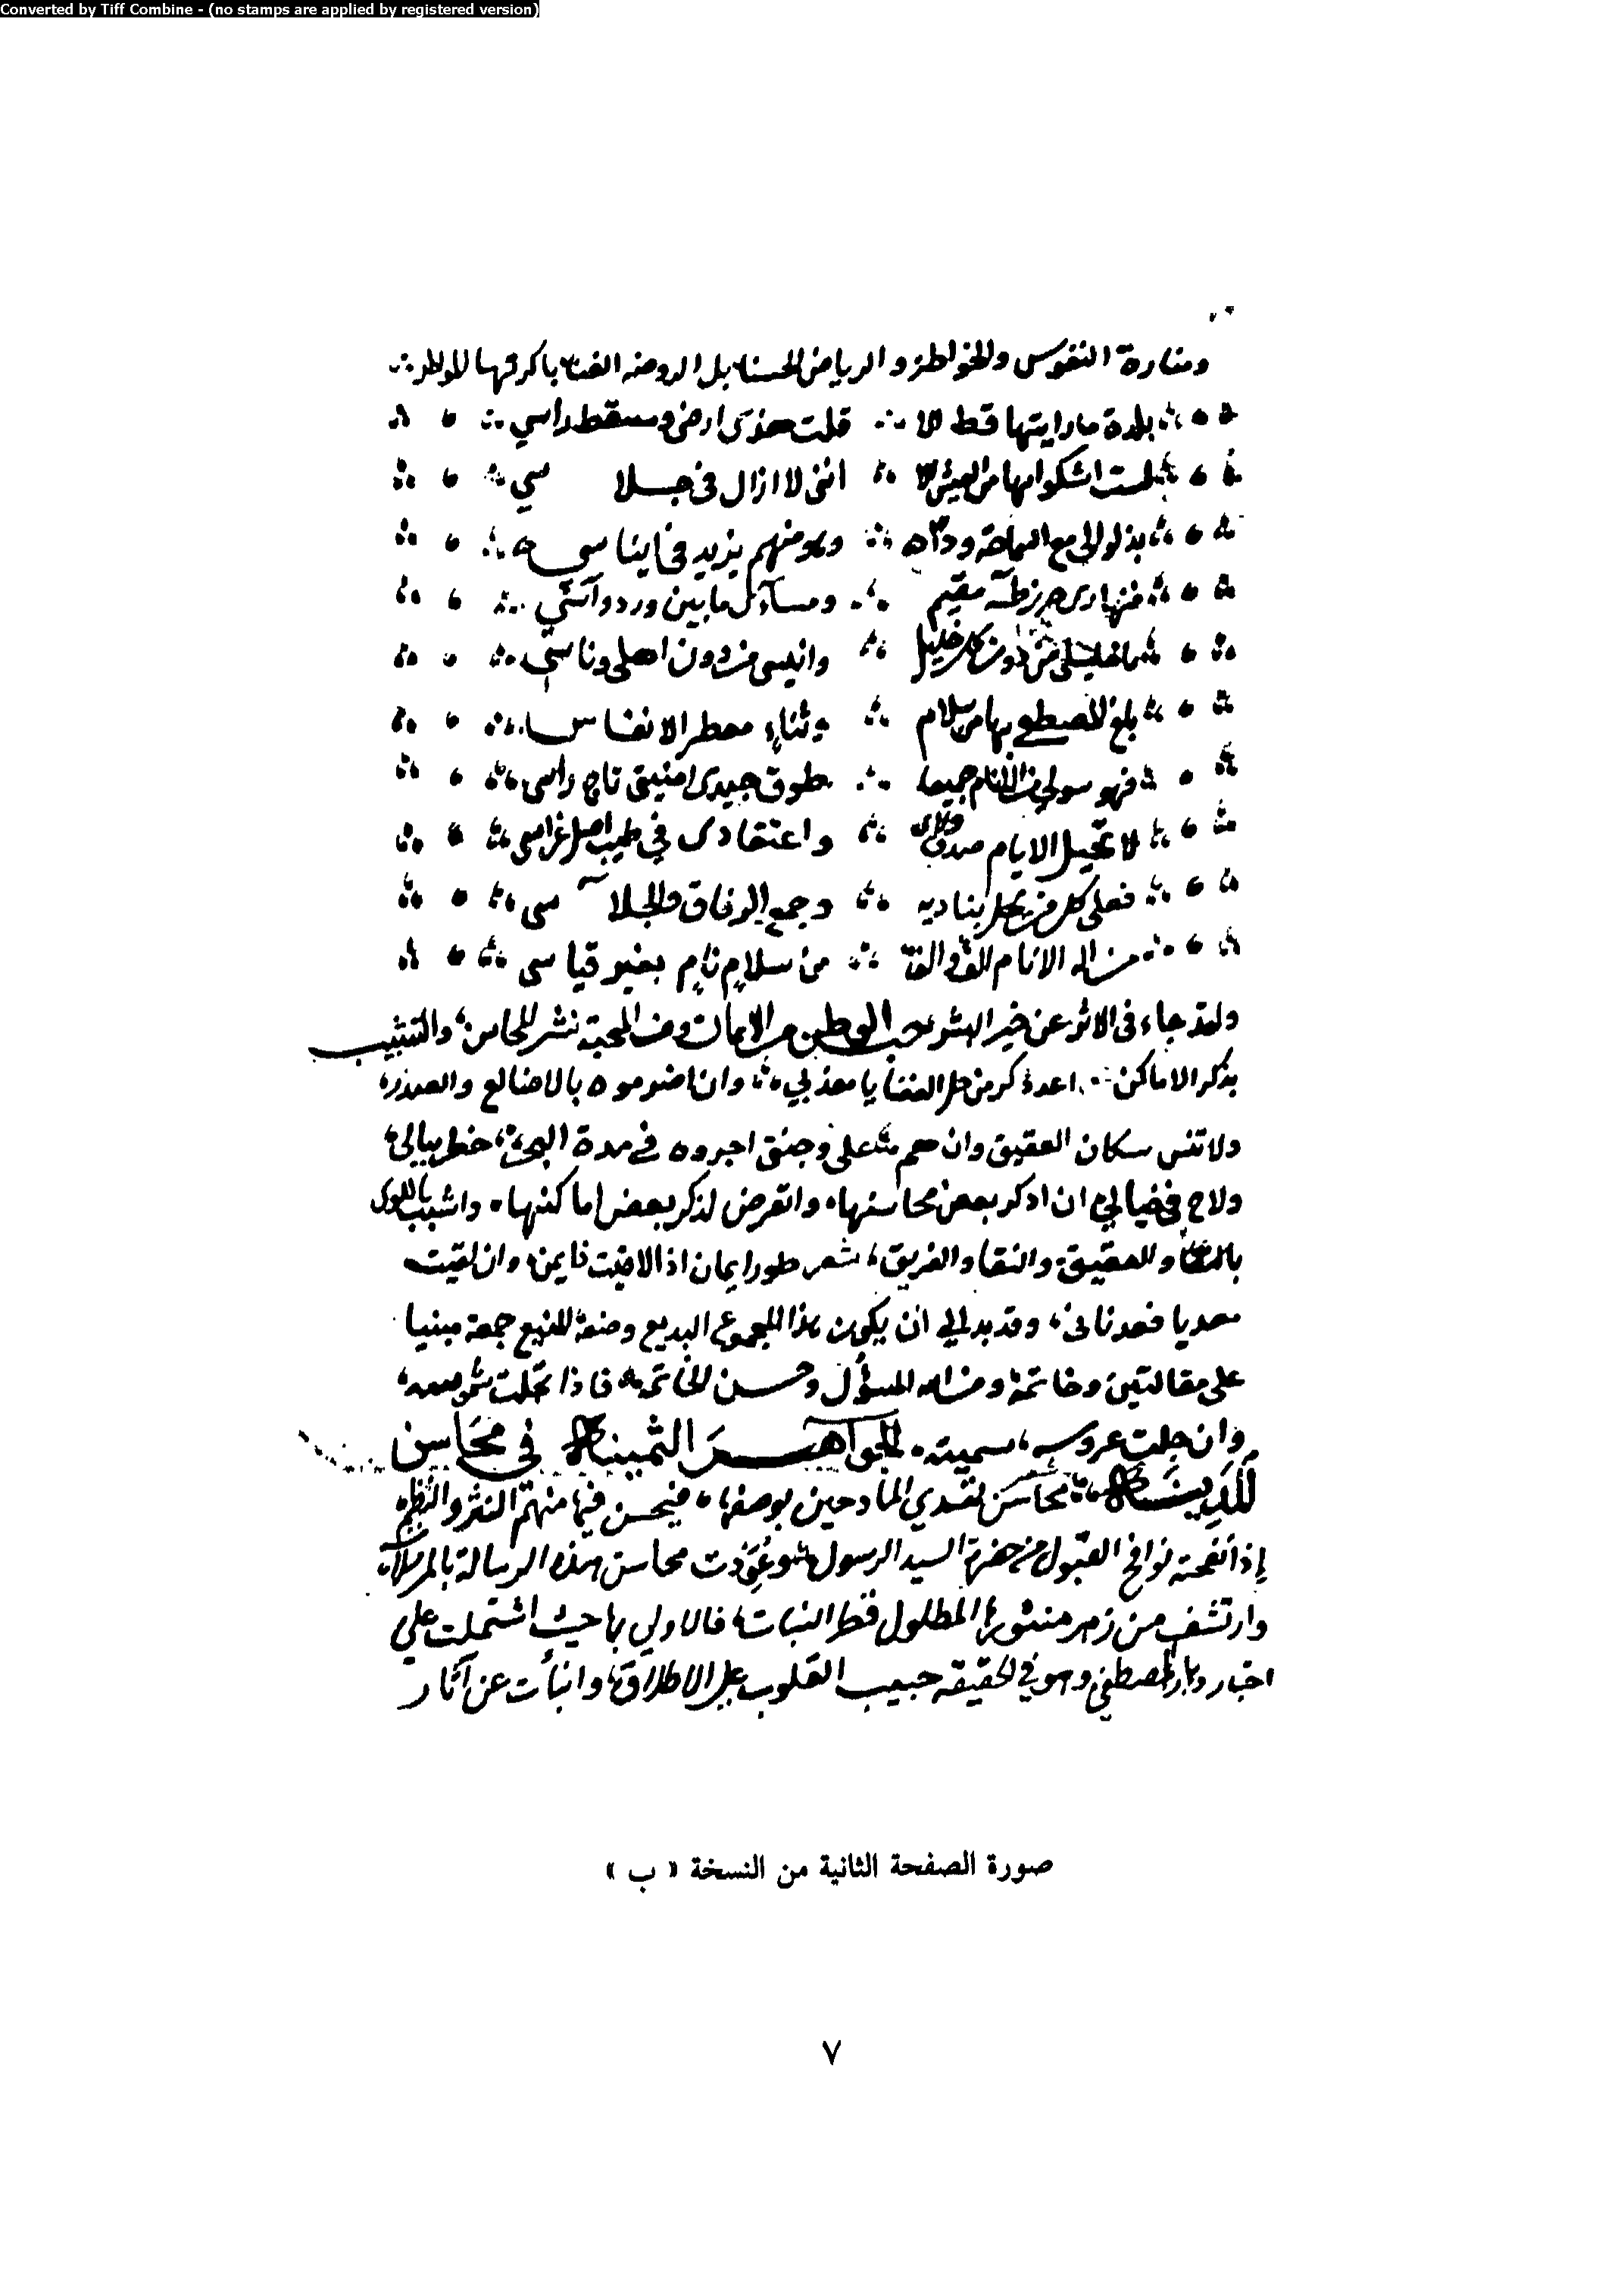 Converted by Tiff Combine - (no stamps are applied by registered version)
ومنارة النفوس والخواطر والرياض الحسنا بل الروضه الغنا باكرتها المواطر
بلدة مارايتها قط الا قلت هذى ارضى ومسقط راسي
لست اشكوا بها من العيش الا اننى لا ازال فى جلا سي
بذلوا لى مع السماحة وداه وهو منهم يزيد فى ايناسي
فنهارى مقيم ومسآئى ما بين ورد وآسي
يا خليلى من دون كل خليل وانيسى من دون اهلى وناسي
بلغ المصطفى بها من سلام وثناءٍ معطر الانفاس
فهو سولى من الانام جميعا طوق جيدى امنيتى تاج راسى
لا تحيل الايام صدق ولاى واعتقادى في طيب اصل غراسى
فعلى كل من يحل بناديه وجميع الرفاق والجلا سى
من اله الانام من سلامٍ نامٍ بغير قياسى
ولقد جاء فى الاثر عن خير البشر حب الوطن من الايمان ومن المحبة نشر المحاسن والتشبيب
بذكر الاماكن اعد ذكر من حل الغضا يا معذبي وان اضرموه بالاضالع والصدر
ولا تنس سكان العقيق وان هم على وجنتى اجروه في مدة خطر ببالى
ولاح في خيالي ان اذكر بعض محاسنها واتعرض لذكر بعض اماكنها واشبب باللوى
والعقيق والنقا والفريق شعر طورا يمان اذا لاقيت ذا يمن وان لقيت
معديا فعدنانى وقد بدا لي ان يكون هذا المجموع البديع وضعه مبنيا
على مقالتين وخاتمة ومن الله المسؤل وحسن الخاتمه فاذا تجلت شموسه
وان جليت عروسه سميته الجواهر الثمينه في محاسن
المدينه محاسن المادحين بوصفها فيحسن فيها منهم النثر والنظم
إذا نفحته نوافح القبول من حضرة السيد الرسول وعُوّذت محاسن هذه الرسالة بالمرسلات
وارتشف من زهر منثورها المطلول قطر النبات فالاولي بها حيث اشتملت علي
اخبار ديار المصطفى وهو في الحقيقه حبيب القلوب على الاطلاق وانبأت عن آثار
صورة الصفحة الثانية من النسخة « ب »
٧